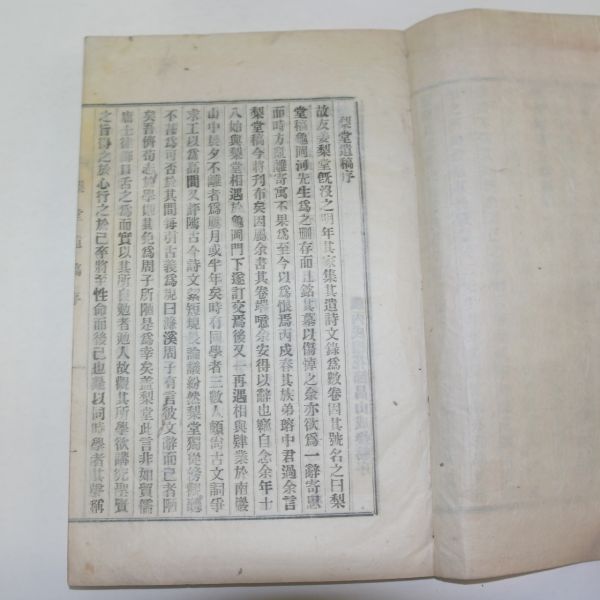 梨堂遺稿序
故友姜梨堂旣沒之明年其家集其遺詩文錄爲數卷因其號名之曰梨
堂稿龜岡河先生爲之刪存而且銘其墓以傷悼之余亦欲爲一辭寄思
而時方亂離寄寓不果爲至今以爲恨焉丙戌春其族弟瑢中君過余言
梨堂稿今將刊布矣因屬余書其卷端噫余安得以辭也窃自念余年十
八始與梨堂相遇於龜岡門下遂訂交焉後又一再遇相與肄業於南巖
山中晨夕不離者爲屢月或半年矣時有同學者三數人頗尙古文詞爭
求工以爲高間又評隲古今詩文絜短規長論議紛然梨堂獨從傍
不澁爲可否於其間每引古義爲規曰濂溪周子有言彼文辭而已者陋
矣吾儕苟志學則其免爲周子所陋是爲幸矣盖梨堂此言非如賢儒
庸士徒譁且舌之爲而實以其所自勉者勉人故觀其所學欲講究聖賢
之旨得之於心行之於己至將至性命而後已也雖以同時學者其聲稱
梨堂遺稿序